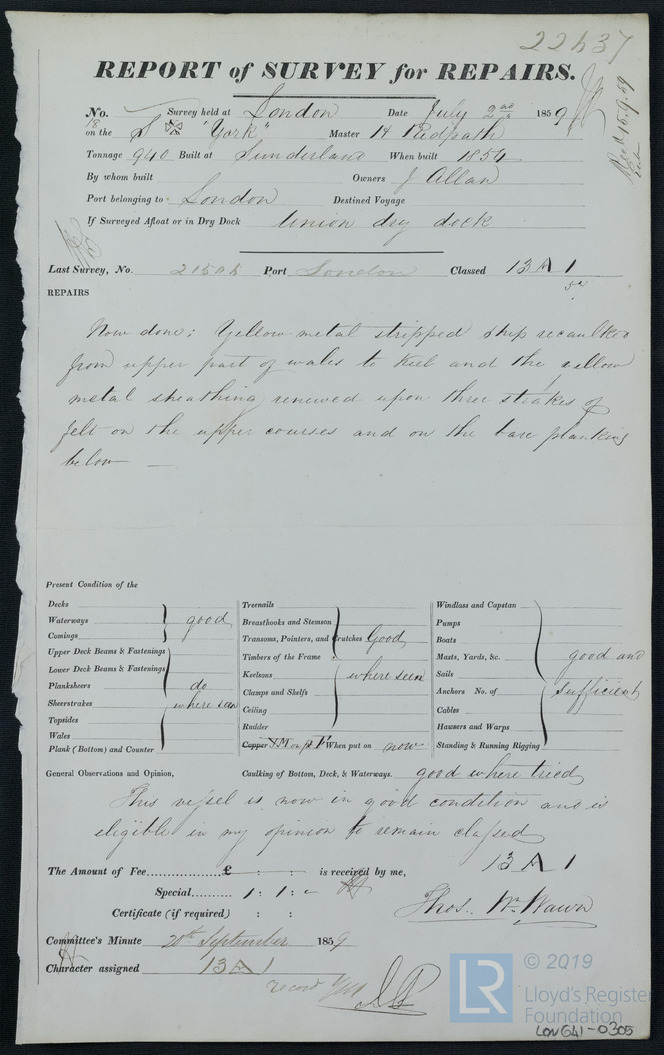 22437
REPORT of SURVEY for REPAIRS.
Recd 15.9.59
No. 18 Survey held at London Date July 2nd 1859
on the S "York" Master H Redpath
Tonnage 940 Built at Sunderland When built 1854
By whom built Owners J Allan
Port belonging to London Destined Voyage
If Surveyed Afloat or in Dry Dock Union dry dock
Last Survey, No. Port London Classed 13 A 1
REPAIRS
Now done: Yellow metal stripped ship recaulked
from upper part of wales to Keel and the yellow
metal sheathing renewed upon three strakes of
felt on the upper courses and on the bare planking
below —
Present Condition of the
Decks
Waterways good
Comings
Upper Deck Beams & Fastenings
Lower Deck Beams & Fastenings
Planksheers do
Sheerstrakes where seen
Topsides
Wales
Plank (Bottom) and Counter
Treenails
Breasthooks and Stemson
Transoms, Pointers, and Crutches Good
Timbers of the Frame
Keelsons where seen
Clamps and Shelfs
Ceiling
Rudder
Copper YM on pt F When put on now
Windlass and Capstan
Pumps
Boats
Masts, Yards, &c. good and
Sails
Anchors No. of sufficient
Cables
Hawsers and Warps
Standing & Running Rigging
General Observations and Opinion, Caulking of Bottom, Deck, & Waterways. good where tried
This vessel is now in good condition and is
eligible in my opinion to remain classed
13 A 1
The Amount of Fee £ : : is received by me,
Special 1 : 1 : -
Thos. Wm Wawn
Certificate (if required) : :
Committee's Minute 20th September 1859
Character assigned 13 A 1
record
LR © 2019
Lloyd's Register
Foundation
LON641-0305